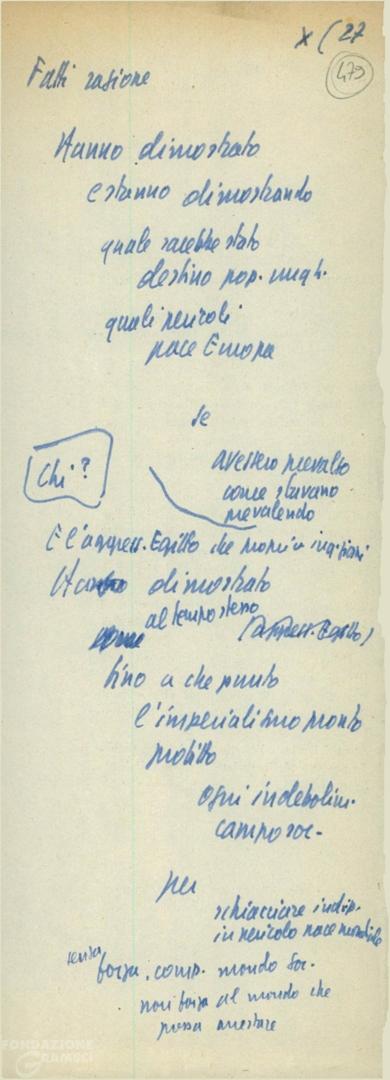 X (27
479
Fatti ragione
Hanno dimostrato
e stanno dimostrando
quale sarebbe stato
destino pop. ungh.
quali pericoli
pace Europa
se
Chi?
avessero prevalso
come stavano
prevalendo
E l'aggress. Egitto che
dimostrato
al tempo stesso
(aggress. Egitto)
fino a che punto
l'imperialismo pronto
profitto
ogni indebolim.
campo soc.
per
schiacciare indip.
in pericolo pace mondiale
senza
forza, comp. mondo soc.
non forza al mondo che
possa arrestare
FONDAZIONE
GRAMSCI